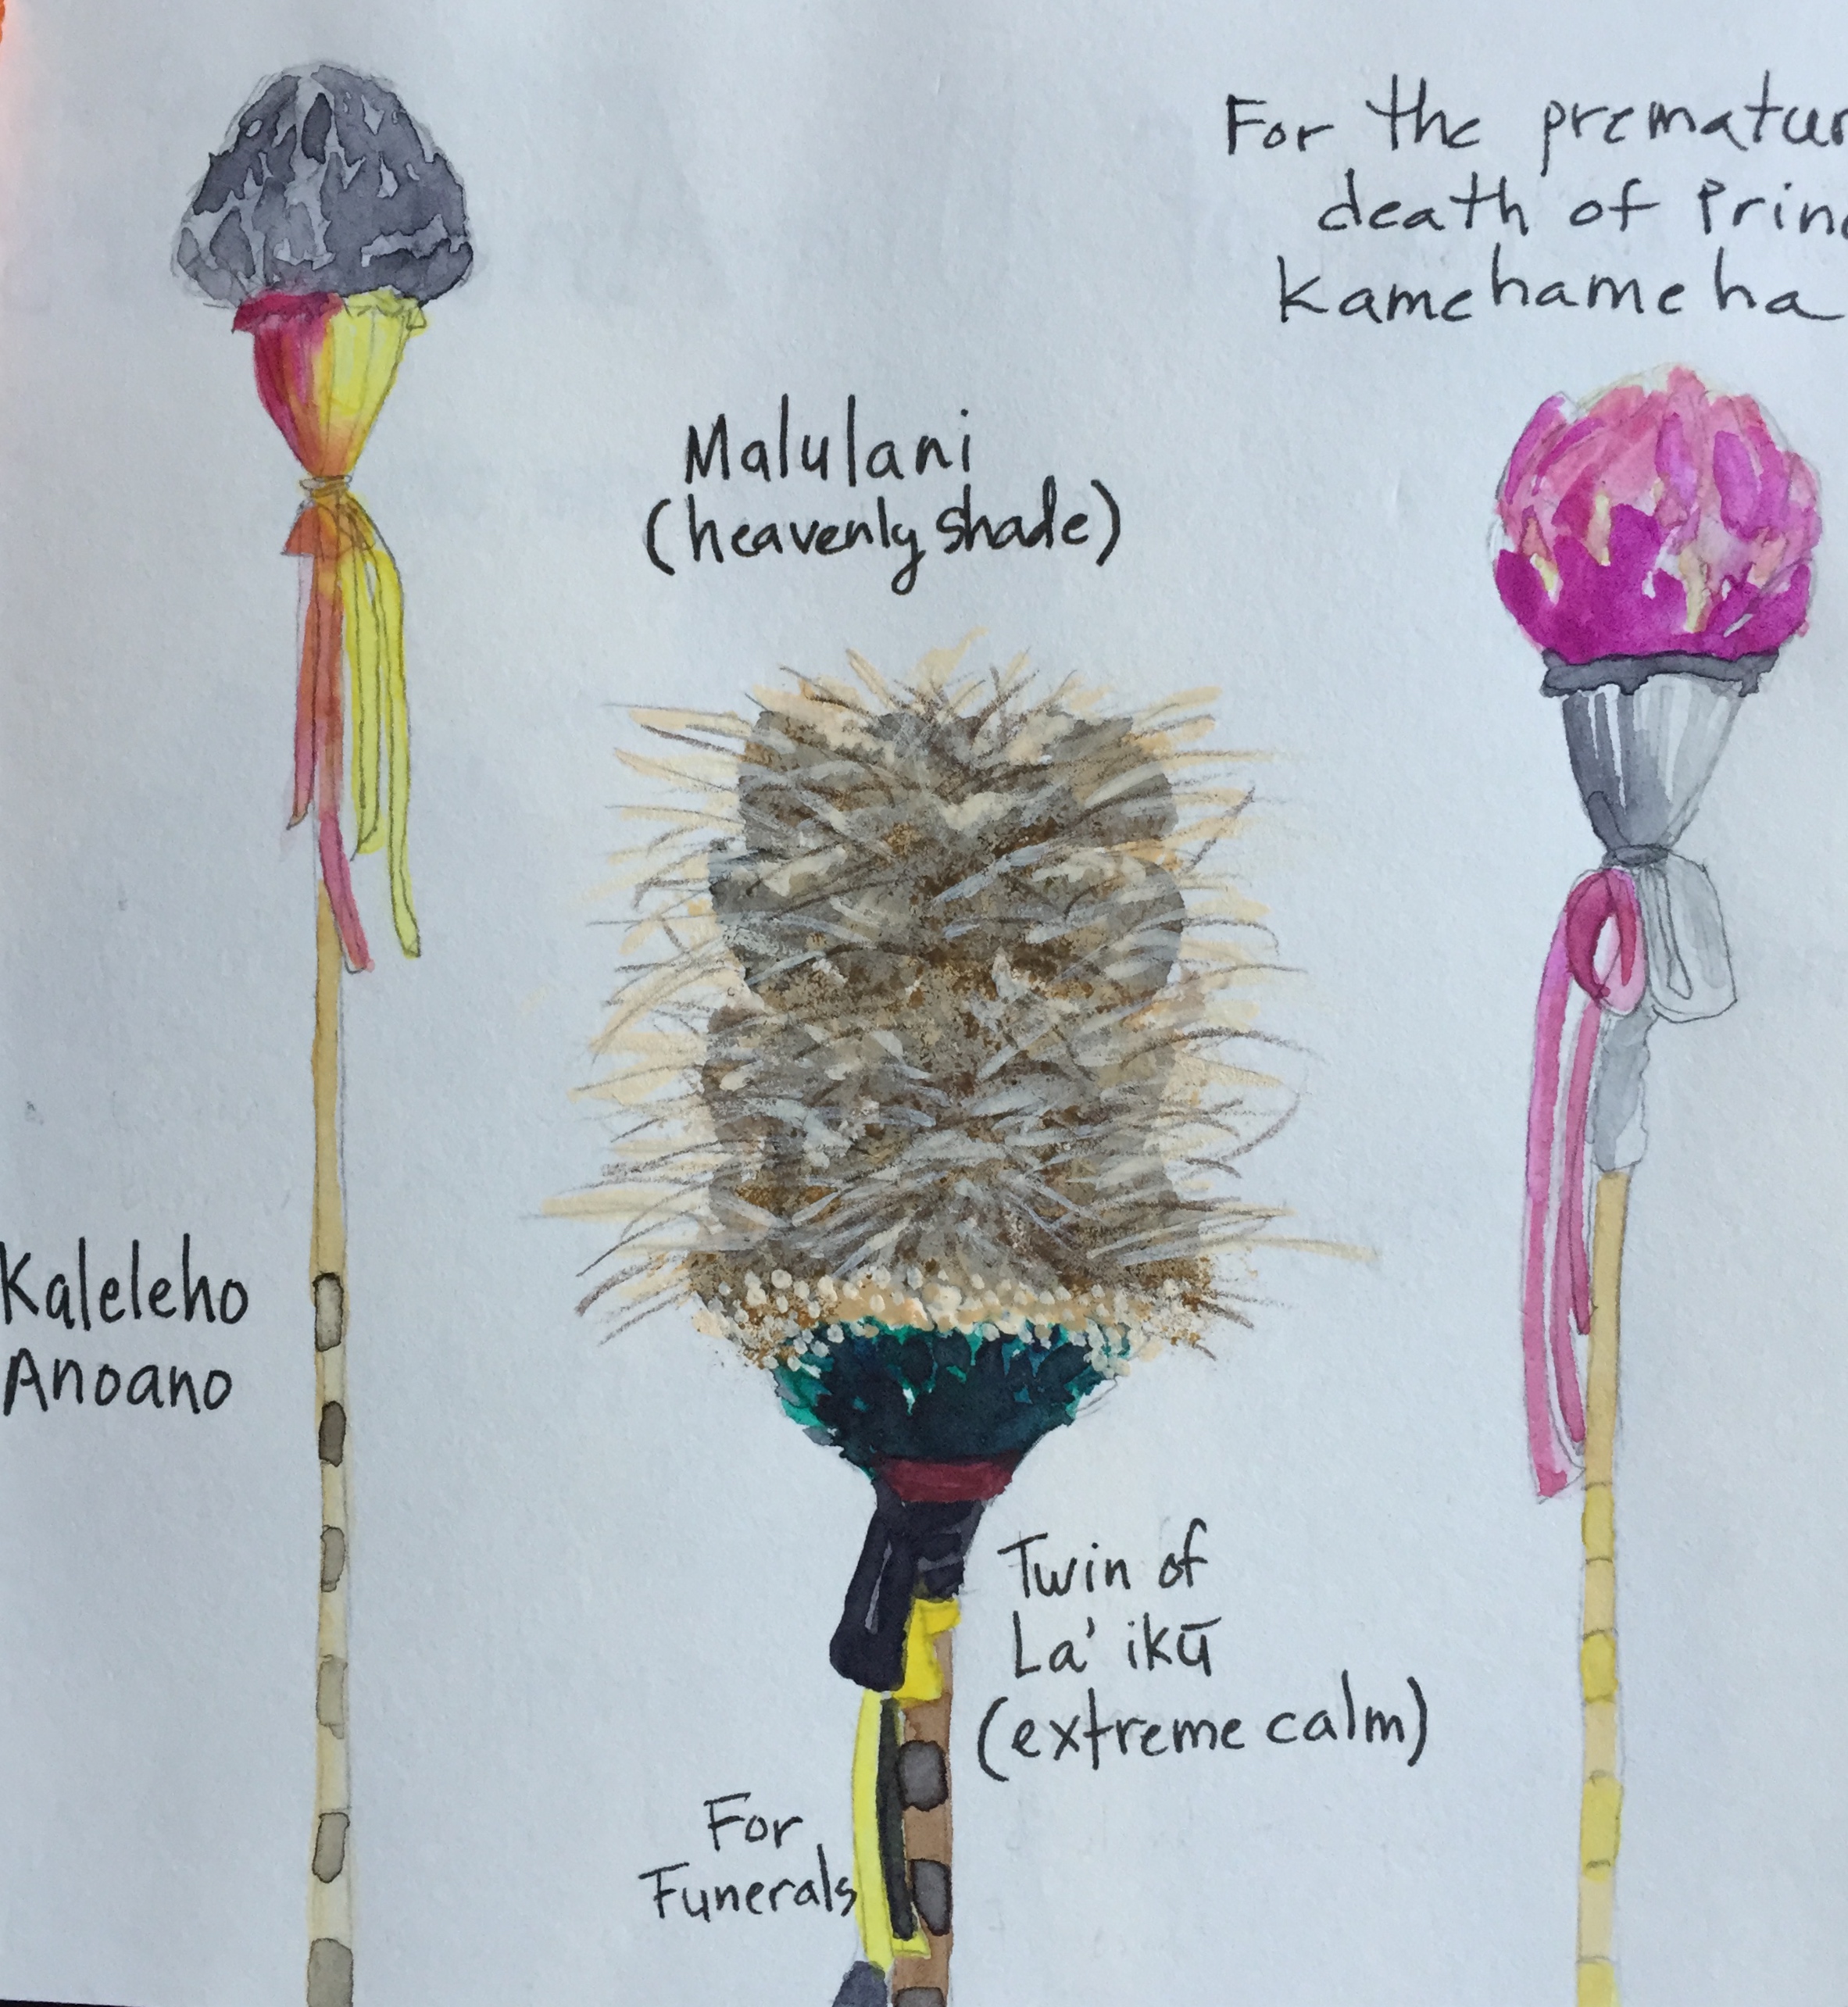 For the prematur
death of Princ
Kamehameha
Malulani
(heavenly shade)
Kaleleho
Anoano
Twin of
La' ikū
(extreme calm)
For
Funerals